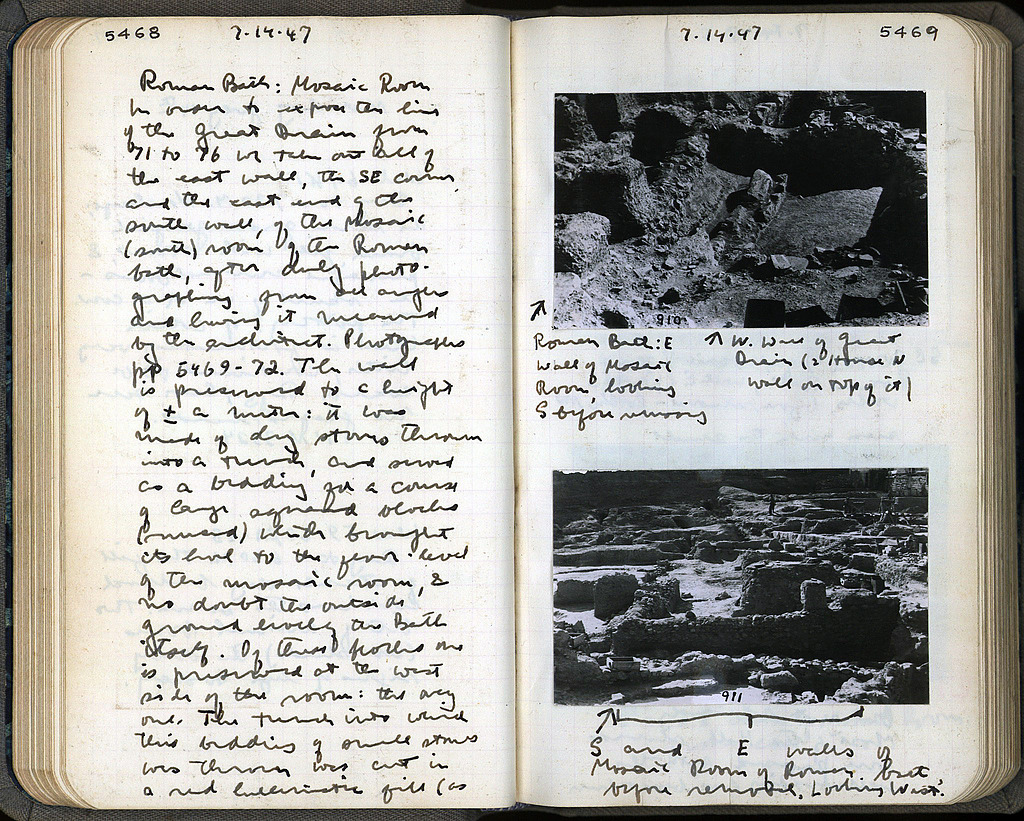 5468 7.14.47
Roman Bath: Mosaic Room
In order to expose the line
of the Great Drain from
71 to 76 we take out all of
the east wall, the SE corner,
and the east end of the
south wall, of the Mosaic
(south) room of the Roman
bath, after duly photo-
graphing from all angles
and having it measured
by the architect. Photographs
pp 5469-72. The wall
is preserved to a height
of ± a meter: it was
made of dry stones thrown
into a trench, and served
as a bedding for a course
of large squared blocks
which brought
its level to the floor level
of the mosaic room, &
no doubt the outside
ground level of the Bath
itself. Of these blocks one
is preserved at the west
side of the room: the only
one. The trench into which
this bedding of small stones
was thrown was cut in
a red hellenistic fill (as
7.14.47 5469
910
Roman Bath: E
Wall of Mosaic
Room, looking
S before removing
W. Wall of Great
Drain (& House N
wall on top of it)
911
S and E walls of
Mosaic Room of Roman bath,
before removal. Looking West.